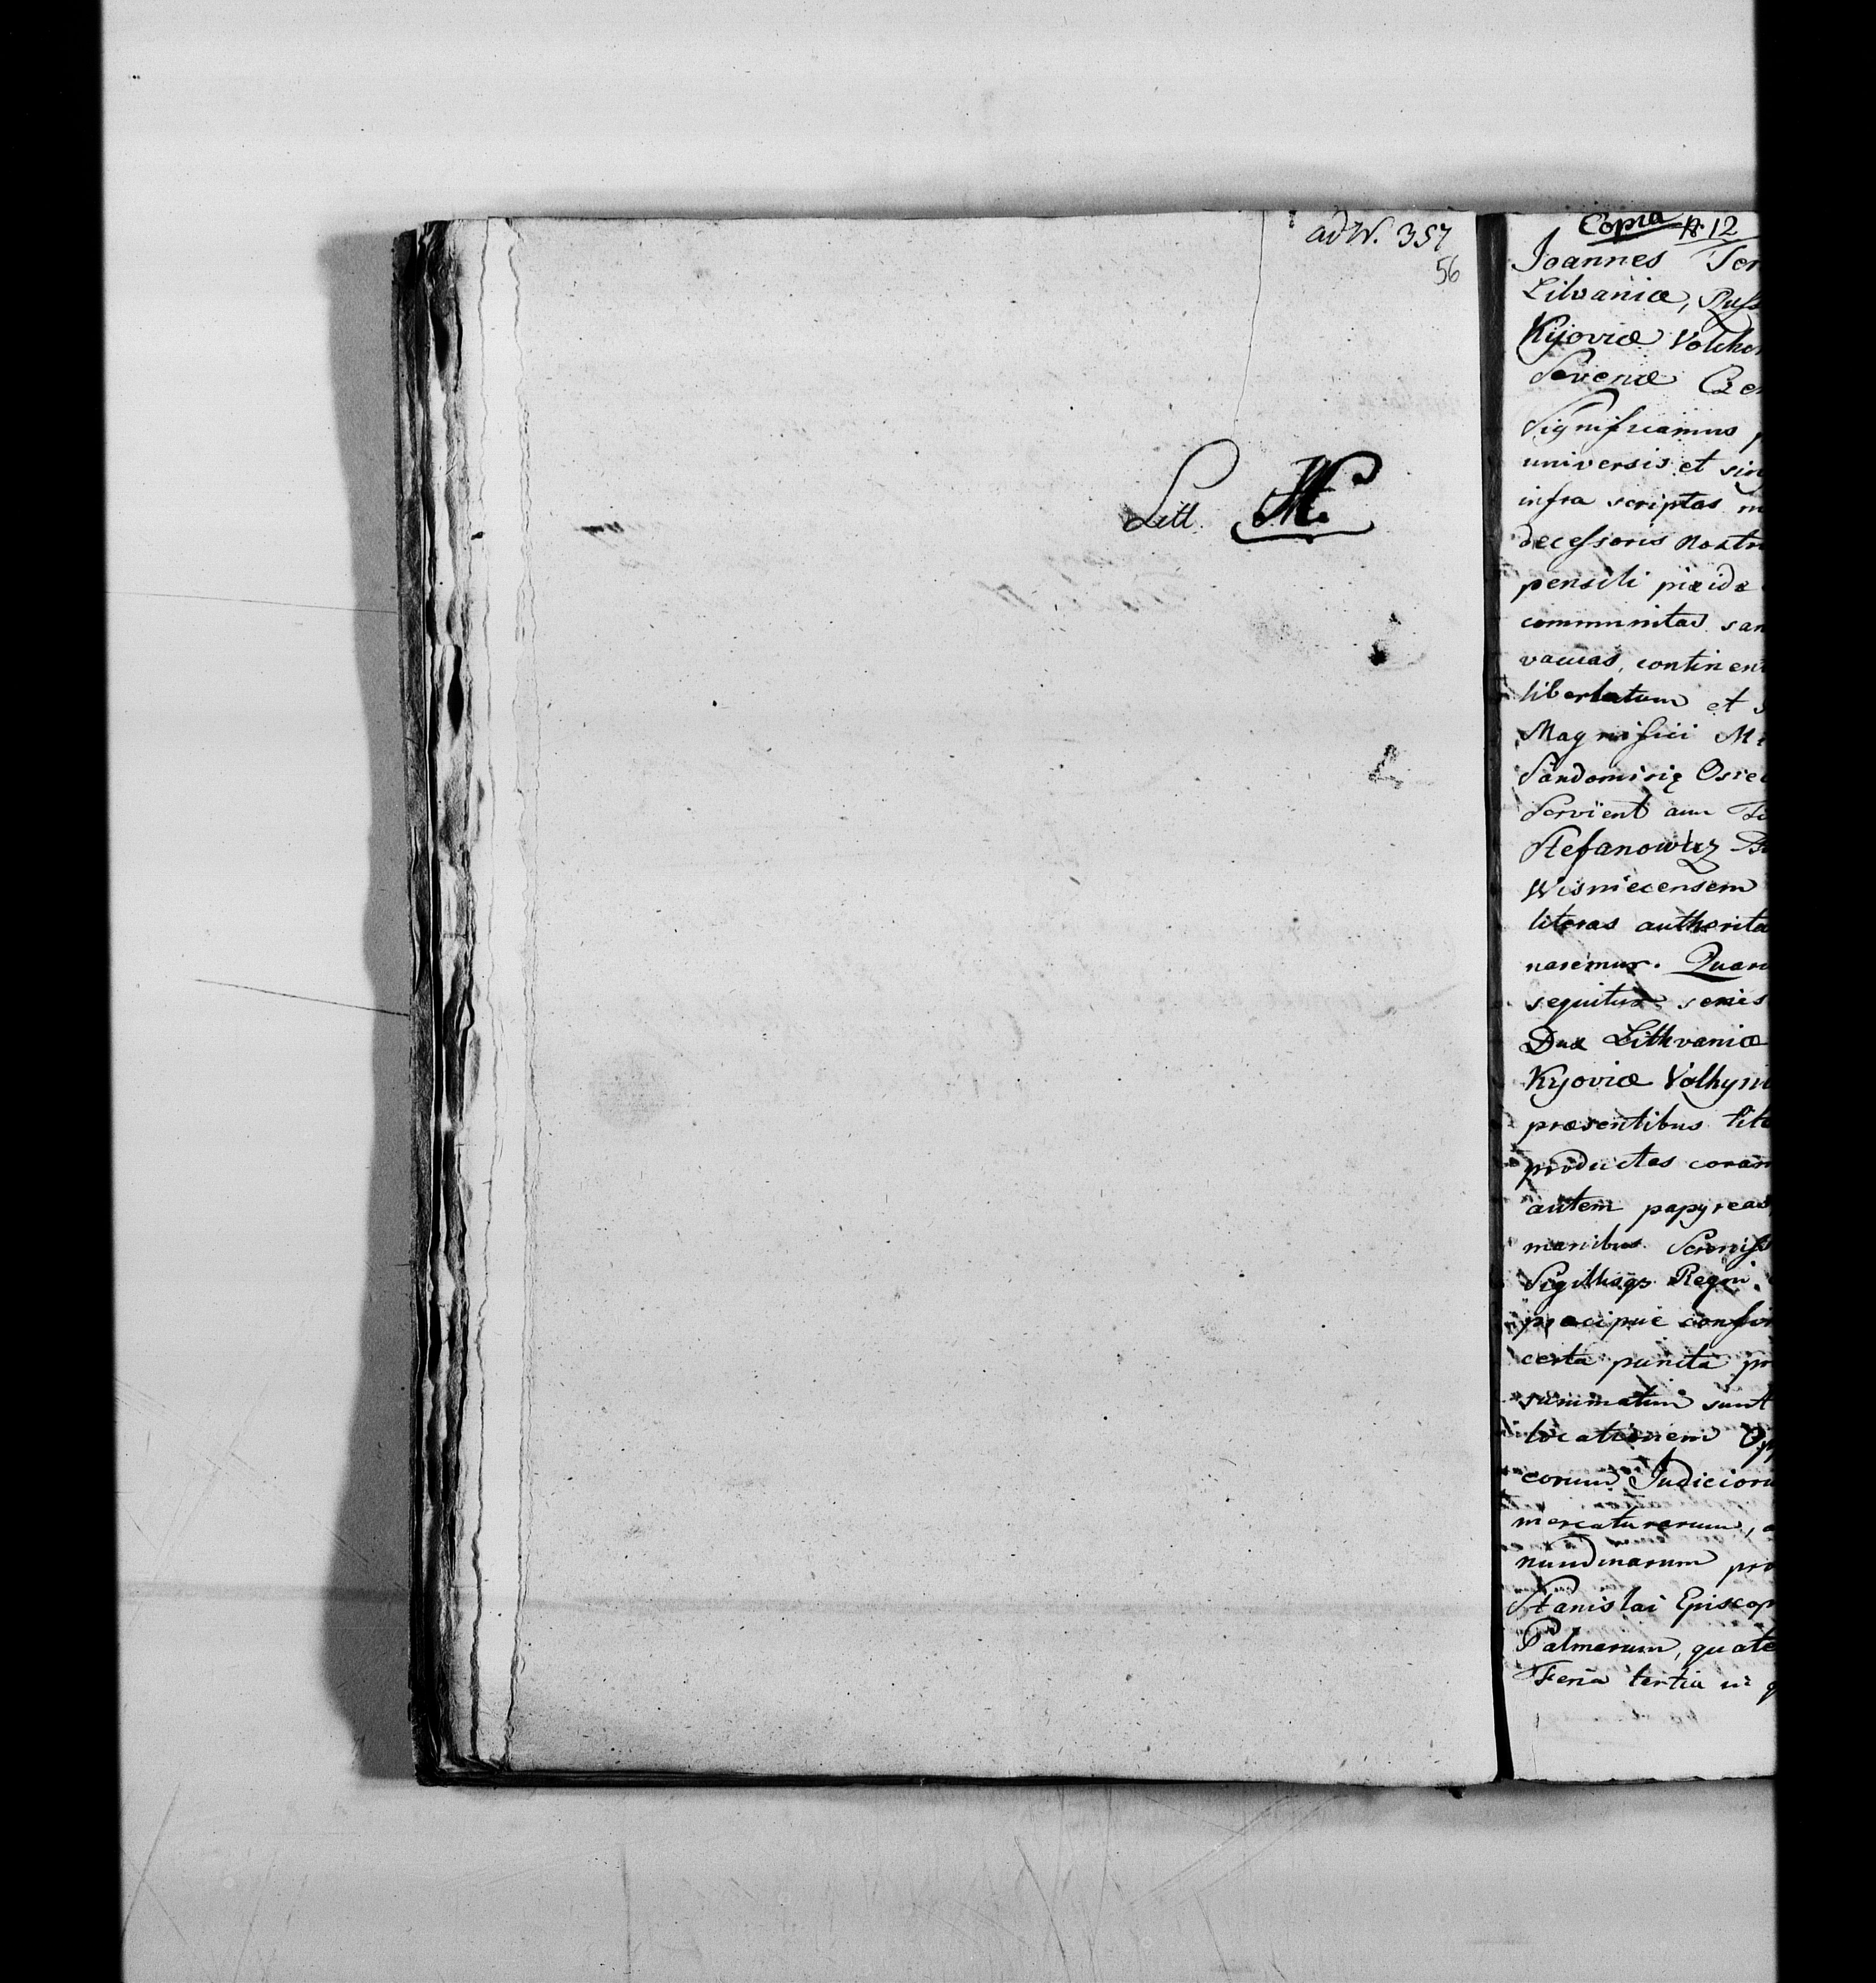 ad N. 357
56
Litt.
Copia N. 12
Joannes Ter
Litvaniæ, Russ
Kijoviæ Volche
Severiæ Cze
Significamus p
universis et sing
infra scriptas m
decessoris Nostri
pensili pixide
communitas san
vacuas, continen
libertatum et
Magnifici M
Sandomirię Osie
Servient
Stefanowicz
Wisniecensem
literas authorita
naremur. Quaru
sequitur series
Dux Lithvaniæ
Kyoviæ Volhyni
præsentibus lite
productas coram
autem papyreas
manibus Serenis
Sigillisqs Regni
præcipue confir
certa puncta pr
summatim sunt
locationem Op
corum Judicioru
mercaturarum, a
nundinarum pro
Stanislai Episcop
Palmarum, quate
Feria tertia in q